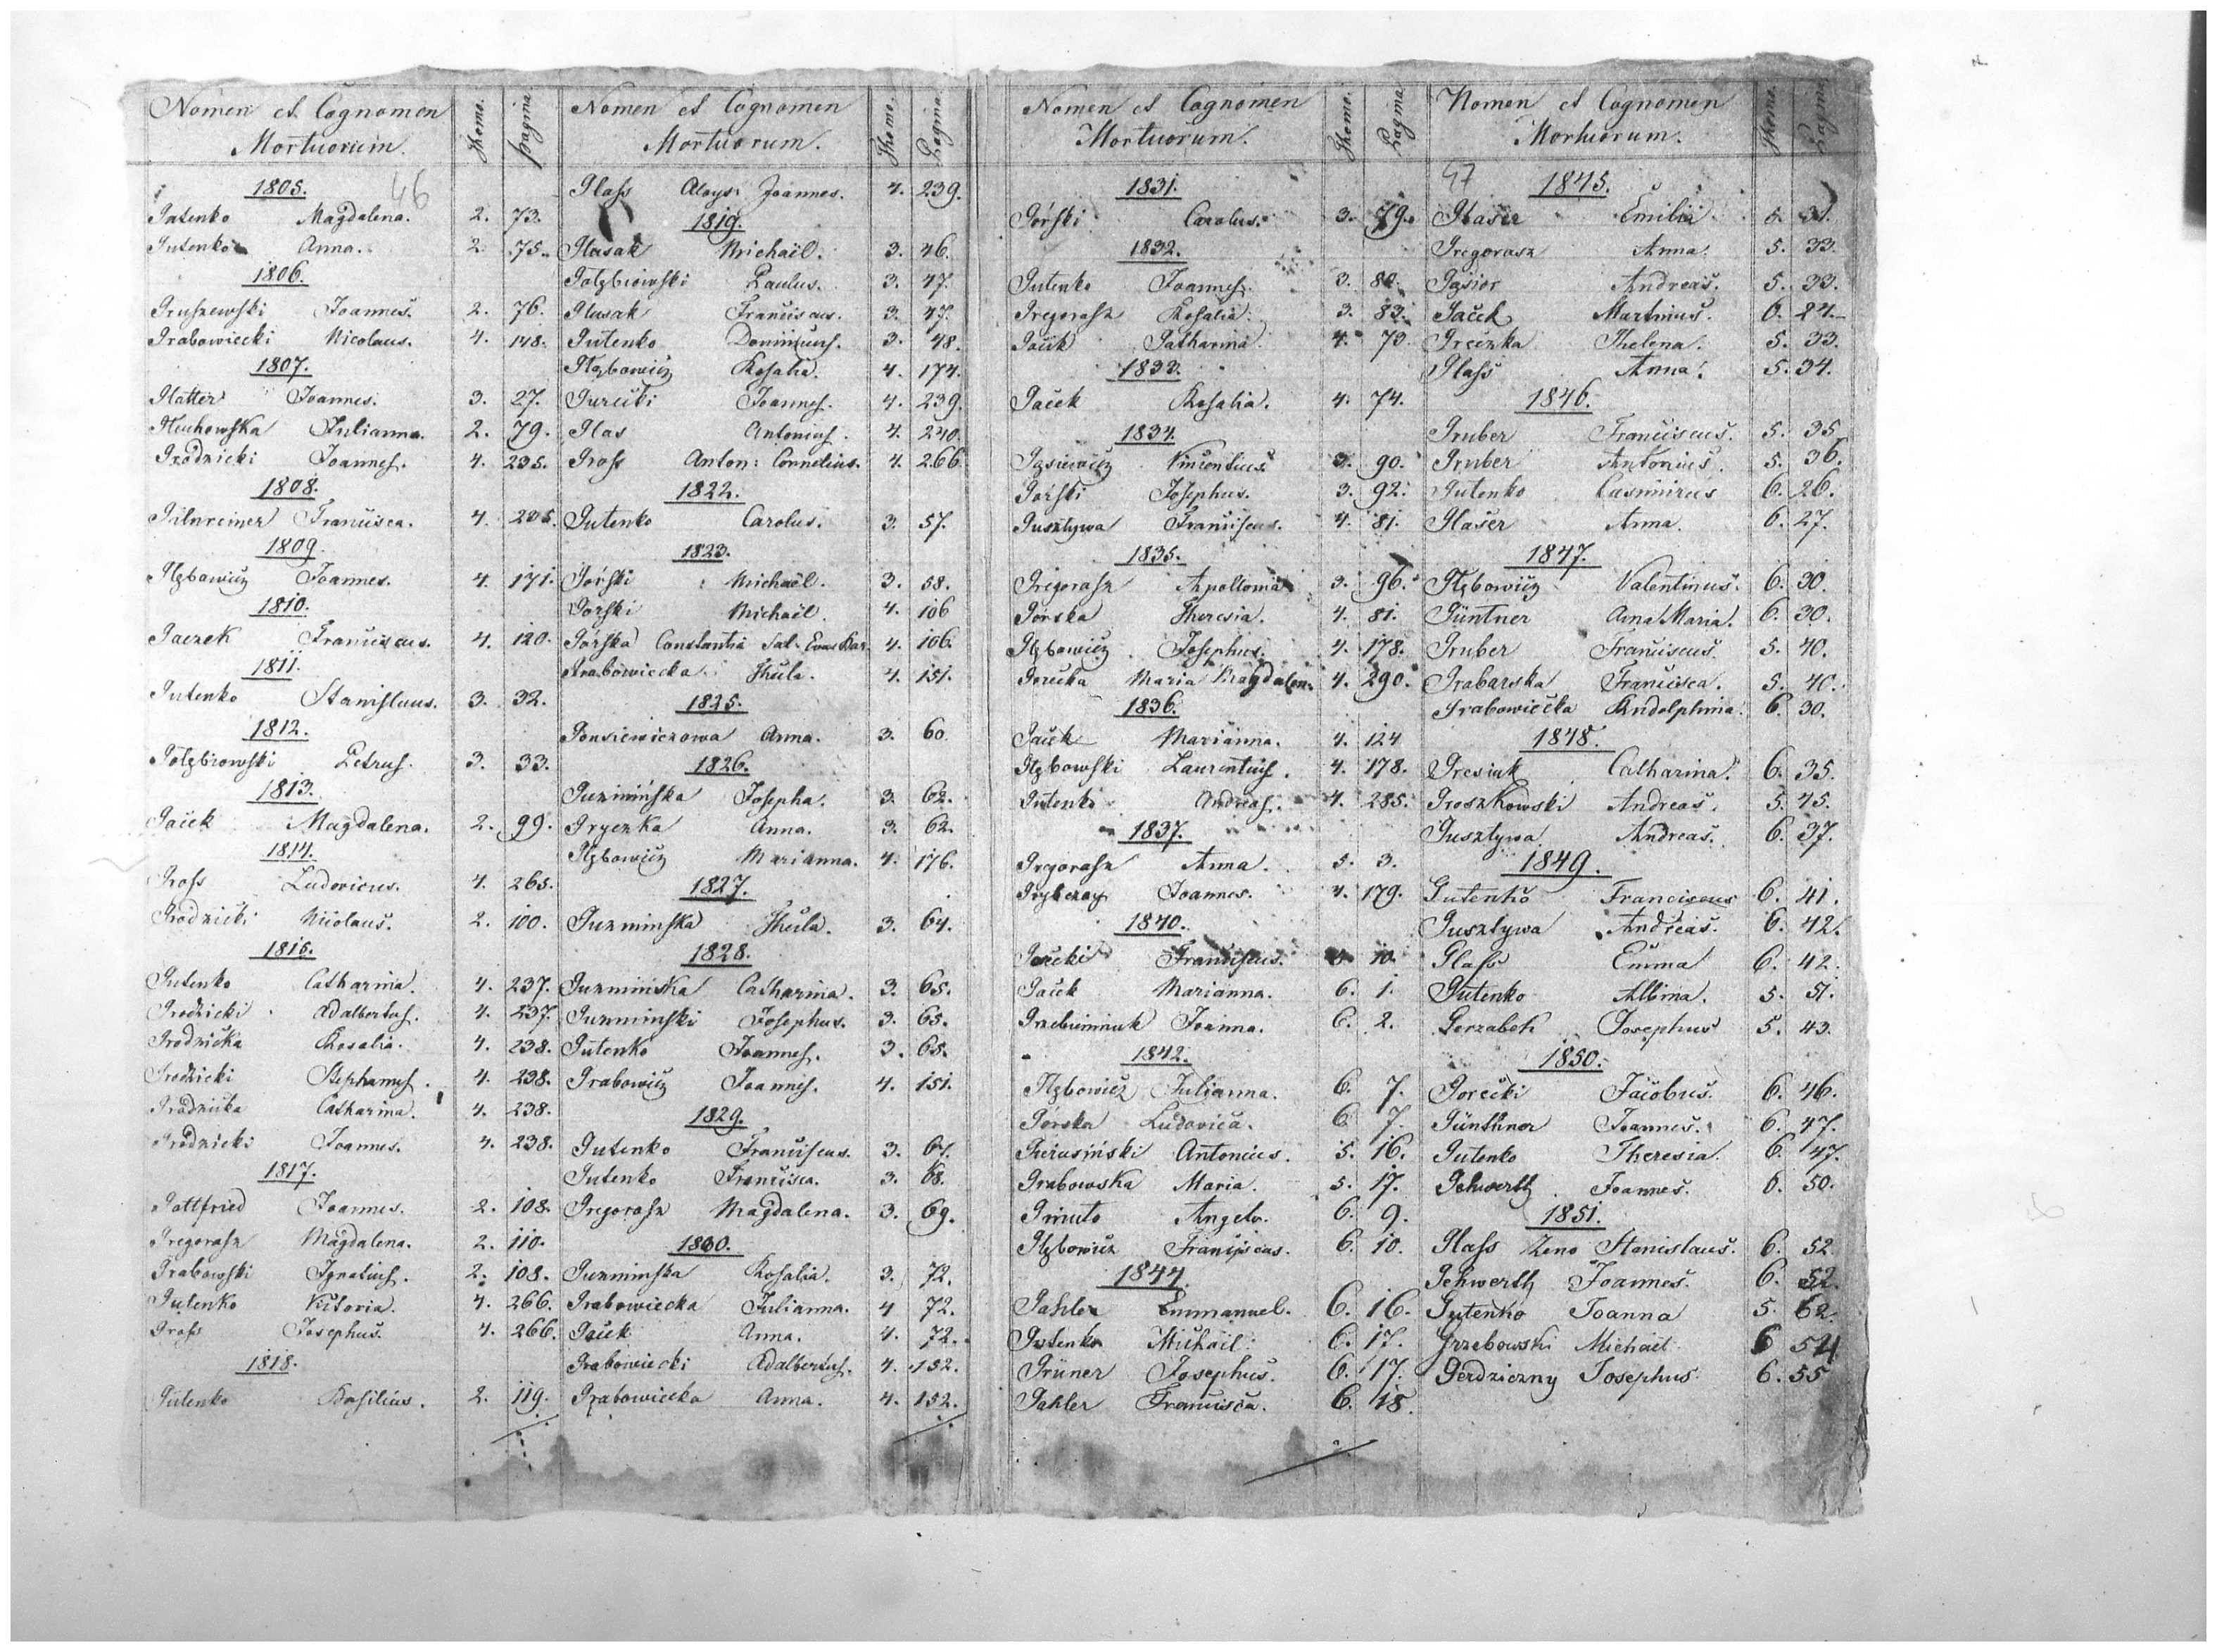 Nomen et Cognomen
Mortuorum.
Thomo.
Pagina
46
1805.
Gutenko Magdalena. 2. 73.
Gutenko Anna. 2. 75.
1806.
Gruszewski Joannes. 2. 76.
Grabowiecki Nicolaus. 4. 148.
1807.
Glatter Joannes. 3. 27.
Gluchowska Julianna. 2. 79.
Grodzicki Joannes. 4. 235.
1808.
Gilnreiner Francisca. 4. 235.
1809.
Głębowicz Joannes. 4. 171.
1810.
Gaczek Franciscus. 4. 120.
1811.
Gutenko Stanislaus. 3. 32.
1812.
Gołębiowski Petrus. 3. 33.
1813.
Gaček Magdalena. 2. 99.
1814.
Gross Ludovicus. 4. 265.
Grodzicki Nicolaus. 2. 100.
1816.
Gutenko Catharina. 4. 237.
Grodzicki Adalbertus. 4. 237.
Grodzicka Rosalia. 4. 238.
Grodzicki Stephanus. 4. 238.
Grodzicka Catharina. 4. 238.
Grodzicki Joannes. 4. 238.
1817.
Gottfried Joannes. 2. 108.
Gregorasz Magdalena. 2. 110.
Grabowski Ignatius. 2. 108.
Gutenko Victoria. 4. 266.
Gross Josephus. 4. 266.
1818.
Gutenko Basilius. 2. 119.
Nomen et Cognomen
Mortuorum.
Thomo.
Pagina
Glass Aloysi Joannes. 4. 239.
1819.
Glusak Michaël. 3. 46.
Gołębiowski Paulus. 3. 47.
Glusak Franciscus. 3. 47.
Gutenko Dominicus. 3. 48.
Głębowicz Rosalia. 4. 174.
Gurecki Joannes. 4. 239.
Glas Antonius. 4. 240.
Gross Anton: Cornelius. 4. 266.
1822.
Gutenko Carolus. 3. 57.
1823.
Górski Michaël. 3. 58.
Gorski Michaël. 4. 106
Górska Constantia 4. 106.
Grabowiecka Thecla. 4. 151.
1825.
Gonsiewiczowa Anna. 3. 60.
1826.
Guzminska Josepha. 3. 62.
Gryczka Anna. 3. 62.
Głębowicz Marianna. 4. 176.
1827.
Guzminska Thecla. 3. 64.
1828.
Guzminska Catharina. 3. 65.
Guzminski Josephus. 3. 65.
Gutenko Joannes. 3. 65.
Grabowicz Joannes. 4. 151.
1829.
Gutenko Franciscus. 3. 67.
Gutenko Francisca. 3. 68.
Gregorasz Magdalena. 3. 69.
1830.
Guzminska Rosalia. 3. 72.
Grabowiecka Julianna. 4 72.
Gaček Anna. 4. 72.
Grabowiecki Adalbertus. 4. 152.
Grabowiecka Anna. 4. 152.
Nomen et Cognomen
Mortuorum.
Thomo.
Pagina
1831.
Górski Carolus. 3. 79.
1832.
Gutenko Joannes. 3. 80.
Gregorasz Rosalia. 3. 83.
Gaček Catharina. 4. 73.
1833.
Gaček Rosalia. 4. 74.
1834.
Gąsiewicz Vincentius. 3. 90.
Gorski Josephus. 3. 92.
Gusztywa Franciscus. 4. 81.
1835.
Gregorasz Apollonia 3. 96.
Gorska Theresia. 4. 81.
Głębowicz Josephus. 4. 178.
Gorecka Maria Magdalen. 4. 290.
1836.
Gaček Marianna. 4. 124
Głębowski Laurentius. 4. 178.
Gutenko Andreas. 4. 285.
1837.
Gregorasz Anna. 5. 3.
Joannes. 4. 179.
1840.
Franciscus. 10.
Gaček Marianna. 6. 1.
Grzebieniiuk Joanna. 6. 2.
1842.
Głębowicz Julianna. 6. 7.
Górska Ludovica. 6. 7.
Gierusiński Antonius. 5. 16.
Grabowska Maria. 5. 17.
Angela. 6. 9.
Głębowicz Franciscus. 6. 10.
1844.
Gahler Emmanuel. 6. 16.
Gutenko Michaël. 6. 17.
Grüner Josephus. 6. 17.
Gahler Francisca. 6. 18.
Nomen et Cognomen
Mortuorum.
Thomo.
Pagina
47
1845.
Glaser Emilia 5. 31.
Gregorasz Anna. 5. 33.
Gąsior Andreas. 5. 33.
Gaček Martinus. 6. 24.
Greczka Thelena. 5. 33.
Glass Anna. 5. 34.
1846.
Gruber Franciscus. 5. 35
Gruber Antonius. 5. 36.
Gutenko Casimirus 6. 26.
Glaser Anna. 6. 27.
1847.
Głębowicz Valentinus. 6. 30.
Güntner Anna Maria. 6. 30.
Gruber Franciscus. 5. 40.
Grabarska Francisca. 5. 40.
Grabowiecka Rudolphina. 6. 30.
1848.
Gresiuk Catharina. 6. 35.
Groszkowski Andreas. 5. 45.
Gusztywa Andreas. 6. 37.
1849.
Gutenko Franciscus 6. 41.
Gusztywa Andreas. 6. 42.
Glass Emma 6. 42.
Gutenko Albina. 5. 51.
Gerzabek Josephus 5. 43.
1850.
Gorecki Jacobus. 6. 46.
Günthner Joannes. 6. 47.
Gutenko Theresia. 6. 47.
Gehwerth Joannes. 6. 50.
1851.
Glass Zeno Stanislaus. 6. 52.
Gehwerth Joannes. 6. 52.
Gutenko Joanna 5. 62.
Grzebowski Michaël 6 54
Gerdziczny Josephus 6. 55